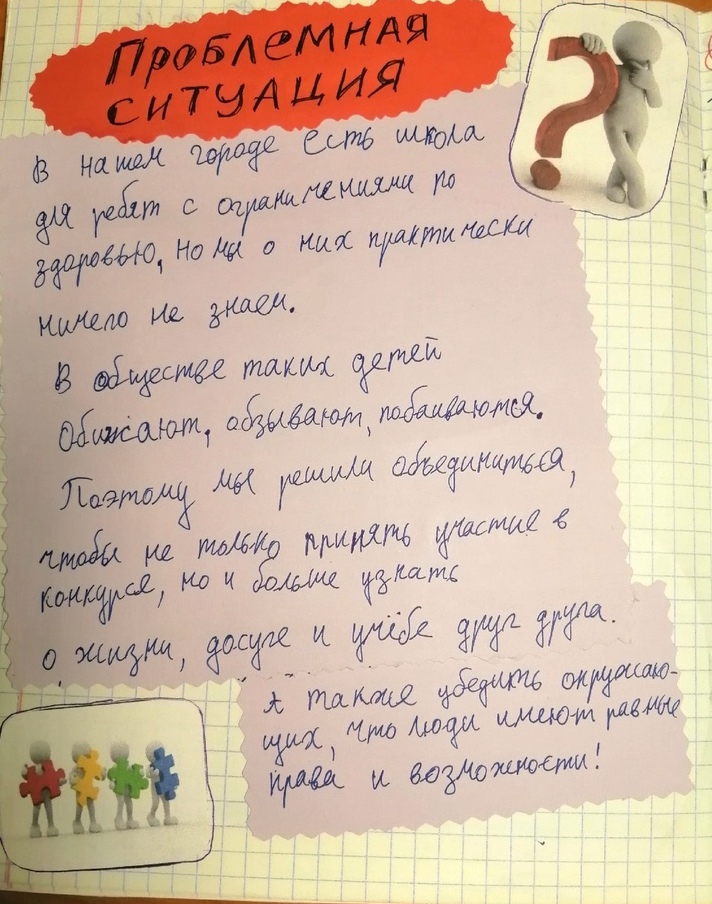 Проблемная
ситуация
В нашем городе есть школа
для ребят с ограничениями по
здоровью, но мы о них практически
ничего не знаем.
В обществе таких детей
обижают, обзывают, побаиваются.
Поэтому мы решили объединиться,
чтобы не только принять участие в
конкурсе, но и больше узнать
о жизни, досуге и учёбе друг друга.
А также убедить окружаю-
щих, что люди имеют равные
права и возможности!